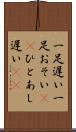 一足遅い一
足おそい
ひとあし
遅い